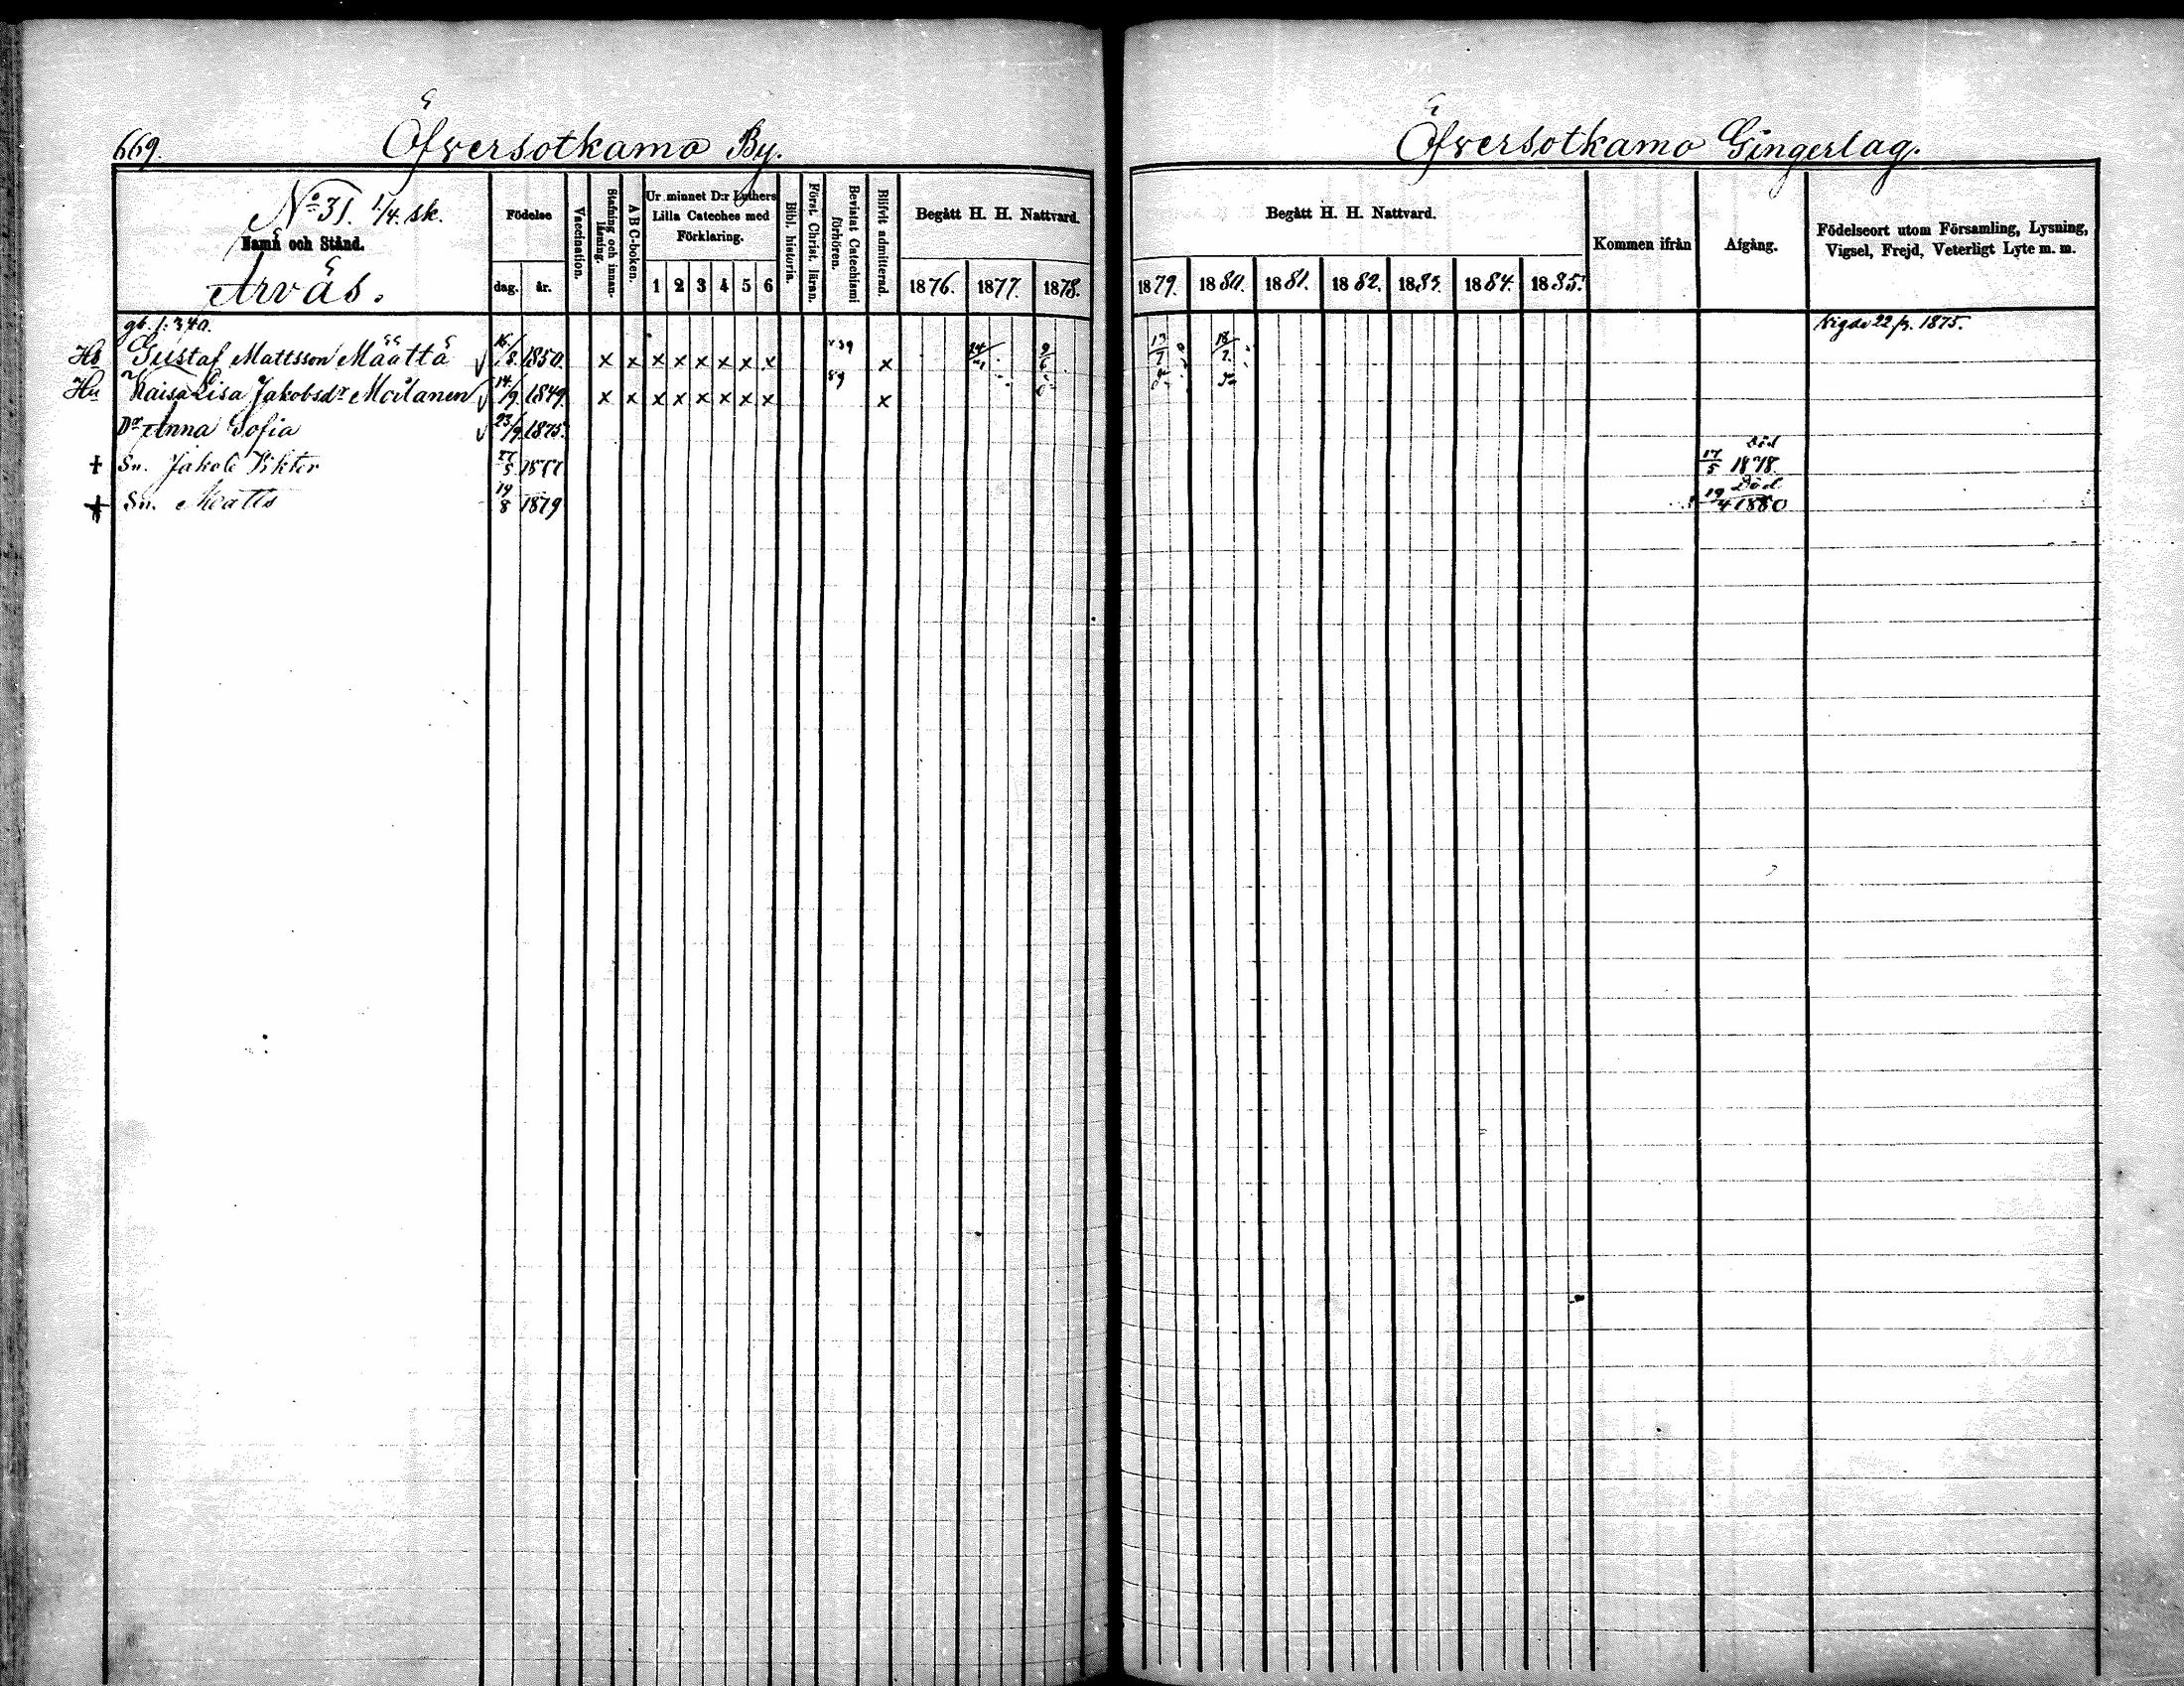 669. Öfversotkamo By.
Öfversotkamo Gingerlag.
No 31. 1/4. sk.
Namn och Stånd.
Arväs.
Födelse
dag. år.
Vaccination.
Stafning och innanläsning.
A B C-boken.
Ur minnet D:r Luthers Lilla Cateches med Förklaring.
1 2 3 4 5 6
Bibl. historia.
Föret. Christ. läran.
Bevistat Catechismi förhören.
Blifvit admitterad.
Begått H. H. Nattvard.
1876. 1877. 1878.
Begått H. H. Nattvard.
1879. 1880. 1881. 1882. 1883. 1884. 1885.
Kommen ifrån
Afgång.
Födelseort utom Församling, Lysning, Vigsel, Frejd, Veterligt Lyte m. m.
gb. f. 340.
Vigde 22/ 1875.
Hb Gustaf Mattsson Määttä 16/8 1850. x x x x x x x x x 9/6 13/7 18/7
Hu Kaisa Lisa Jakobsdr Moilanen 14/9 1849. x x x x x x x x x
Dr Anna Sofia 23/9 1875.
+ Sn. Jakob Viktor 27/5 1877 Död 17/5 1878.
+ Sn. Matts 19/8 1879 Död 19/4 1880